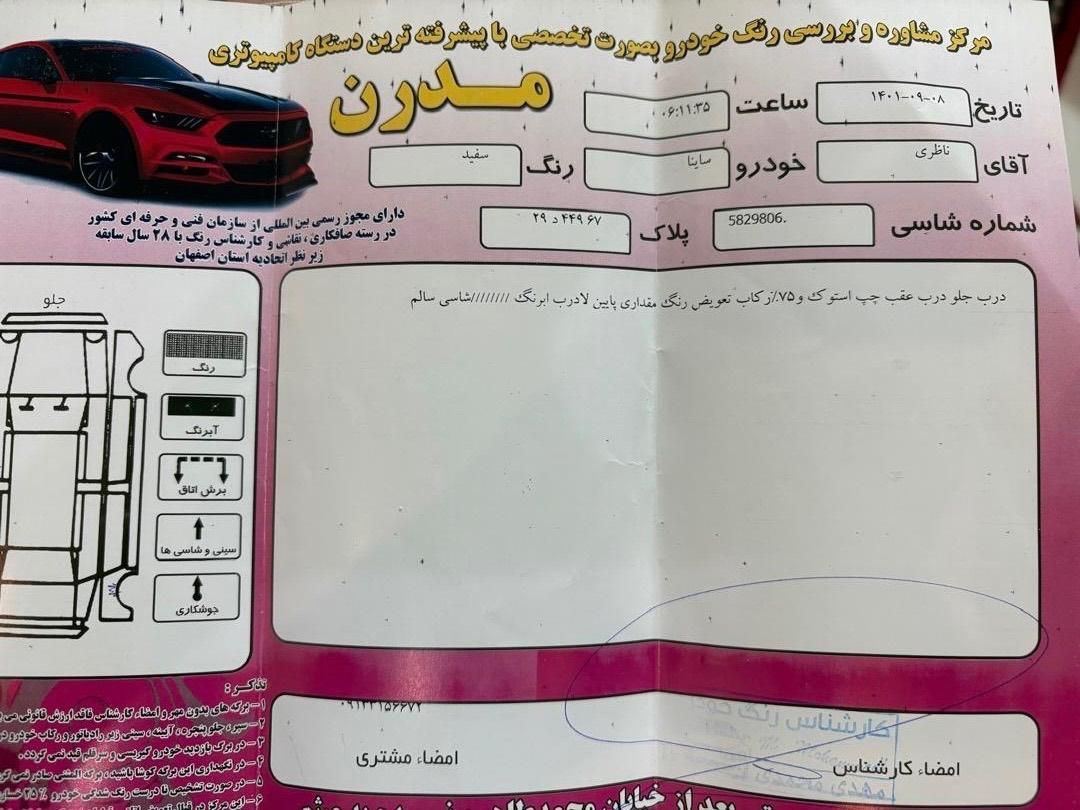 مرکز مشاوره و بررسی رنگ خودرو بصورت تخصصی با پیشرفته ترین دستگاه کامپیوتری
مدرن
تاریخ ۱۴۰۱-۰۹-۰۸ ساعت ۰۶:۱۱:۳۵
آقای ناظری خودرو ساینا رنگ سفید
شماره شاسی 5829806. پلاک ۲۹ د ۴۴۹ ۶۷
دارای مجوز رسمی بین المللی از سازمان فنی و حرفه ای کشور
در رسته صافکاری ، نقاشی و کارشناس رنگ با ۲۸ سال سابقه
زیر نظر اتحادیه استان اصفهان
درب جلو درب عقب چپ استوک و ۷۵٪رکاب تعویض رنگ مقداری پایین لادرب ابرنگ ////////شاسی سالم
جلو
رنگ
آبرنگ
برش اتاق
سینی و شاسی ها
جوشکاری
تذکر :
۱ – برگه های بدون مهر و امضاء کارشناس فاقد ارزش قانونی می
۲ – سپر ، جلو پنجره ، آیینه ، سینی زیر رادیاتور و رکاب خودرو در
۳ – در برگ بازدید خودرو گیربسی و سرقلم قید نمی گردد.
۴ – در نگهداری این برگه کوشا باشید ، برگه المثنی صادر نمی
۵ – در صورت تشخیص نادرست رنگ شدگی خودرو ۲۵ %
۶ – این مرکز در قبال
امضاء مشتری
امضاء کارشناس
کارشناس رنگ خودرو
مهدی محمدی
بعد از خیابان